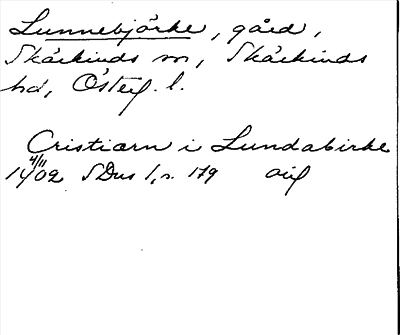 Lunnebjörke, gård,
Skärkinds sn, Skärkinds
hd, Österg. l.
Cristiærn i Lundabirke
4/11
1402 SDns 1, s. 179 avf